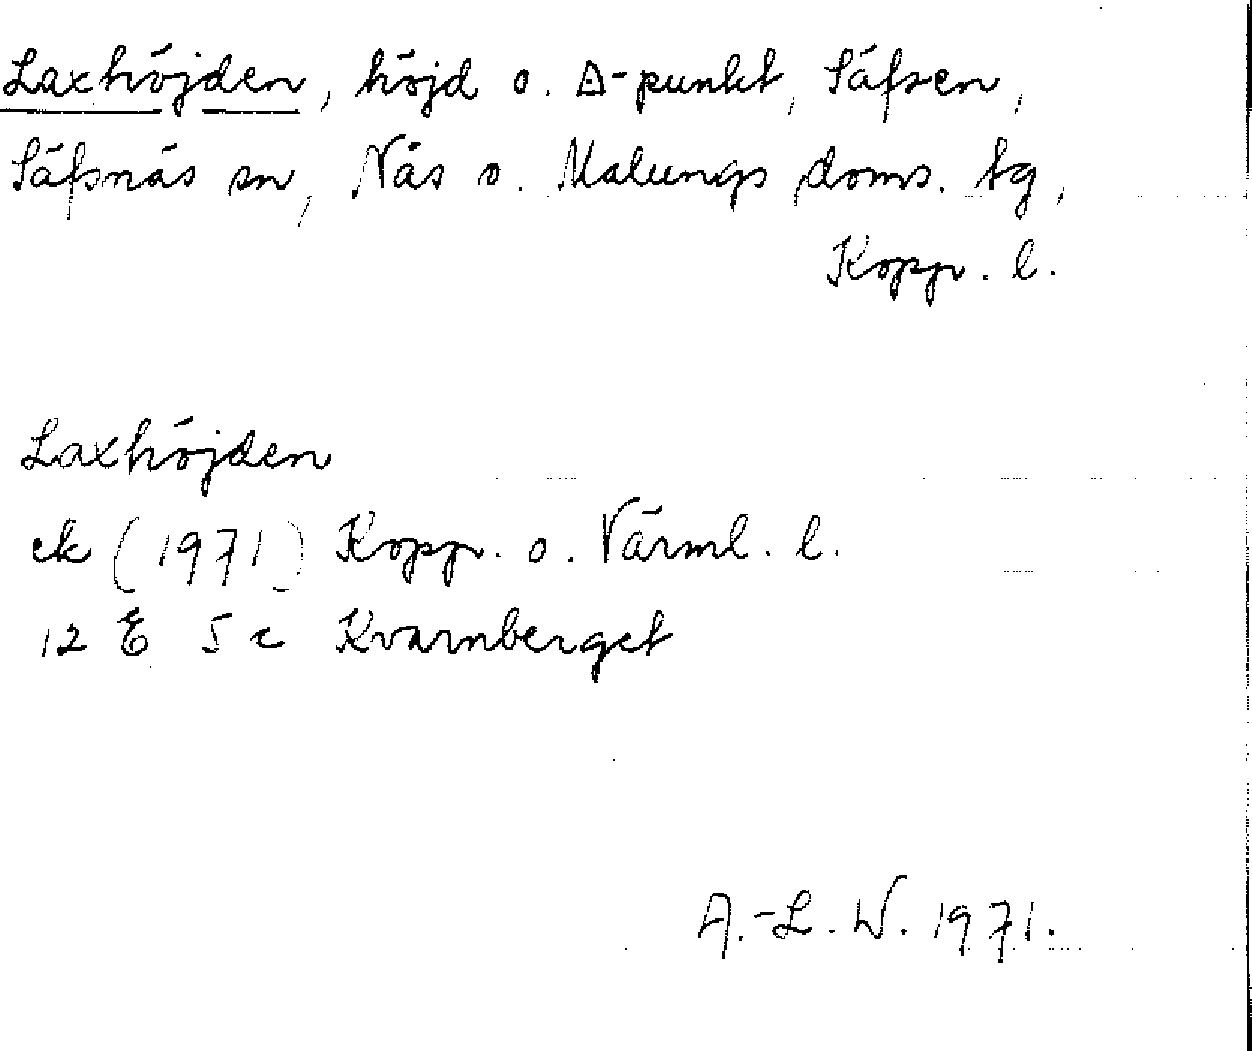 Laxhöjden, höjd o. Δ-punkt, Säfsen,
Säfsnäs sn, Nås o. Malungs doms. tg,
Kopp. l.
Laxhöjden
ek (1971) Kopp. o. Värml. l.
12 E 5 c Kvarnberget
A.-L. W. 1971.